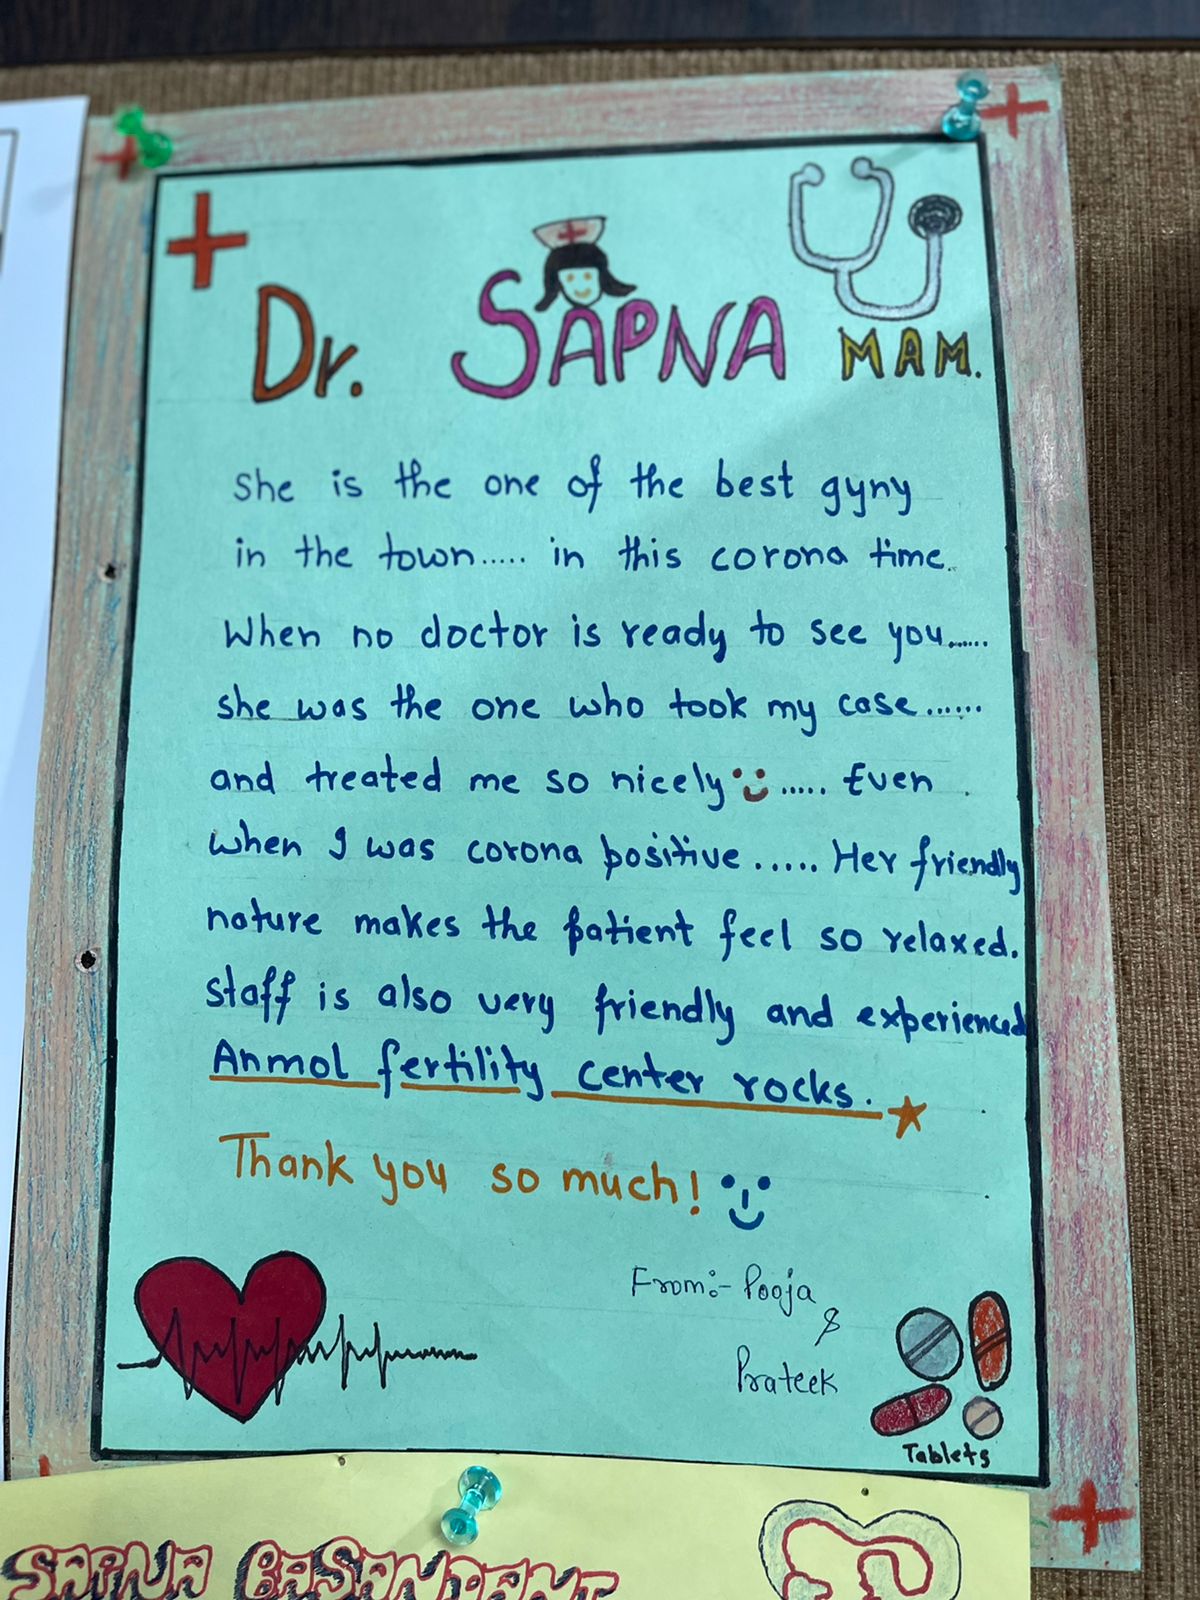 Dr. SAPNA MAM.
She is the one of the best gyny
in the town..... in this corona time.
When no doctor is ready to see you......
she was the one who took my case......
and treated me so nicely..... Even
when I was corona positive..... Her friendly
nature makes the patient feel so relaxed.
Staff is also very friendly and experienced
Anmol fertility center rocks.
Thank you so much!
From:- Pooja
&
Prateek
Tablets
SAPNA BASANDANI